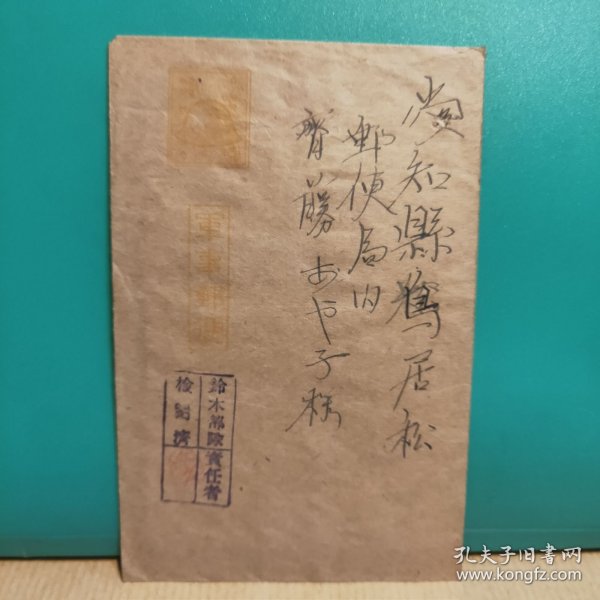 愛知縣鳥居松
郵便局内
齊藤あや子様
軍事郵便
鈴木部隊責任者
検閲濟
孔夫子旧书网
www.kongfz.com